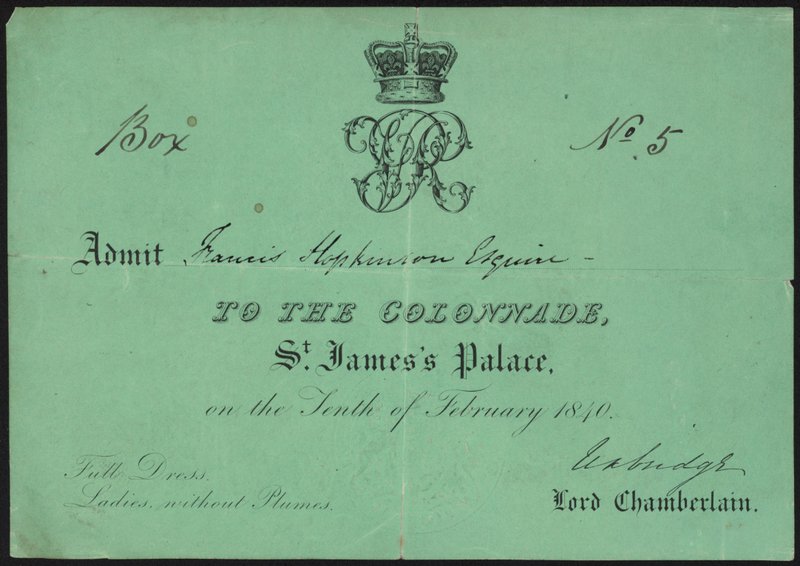 VR
Box
No 5
Admit Francis Hopkinson Esquire -
TO THE COLONNADE,
St. James's Palace,
on the Tenth of February 1840.
Uxbridge
Full Dress.
Ladies, without Plumes.
Lord Chamberlain.